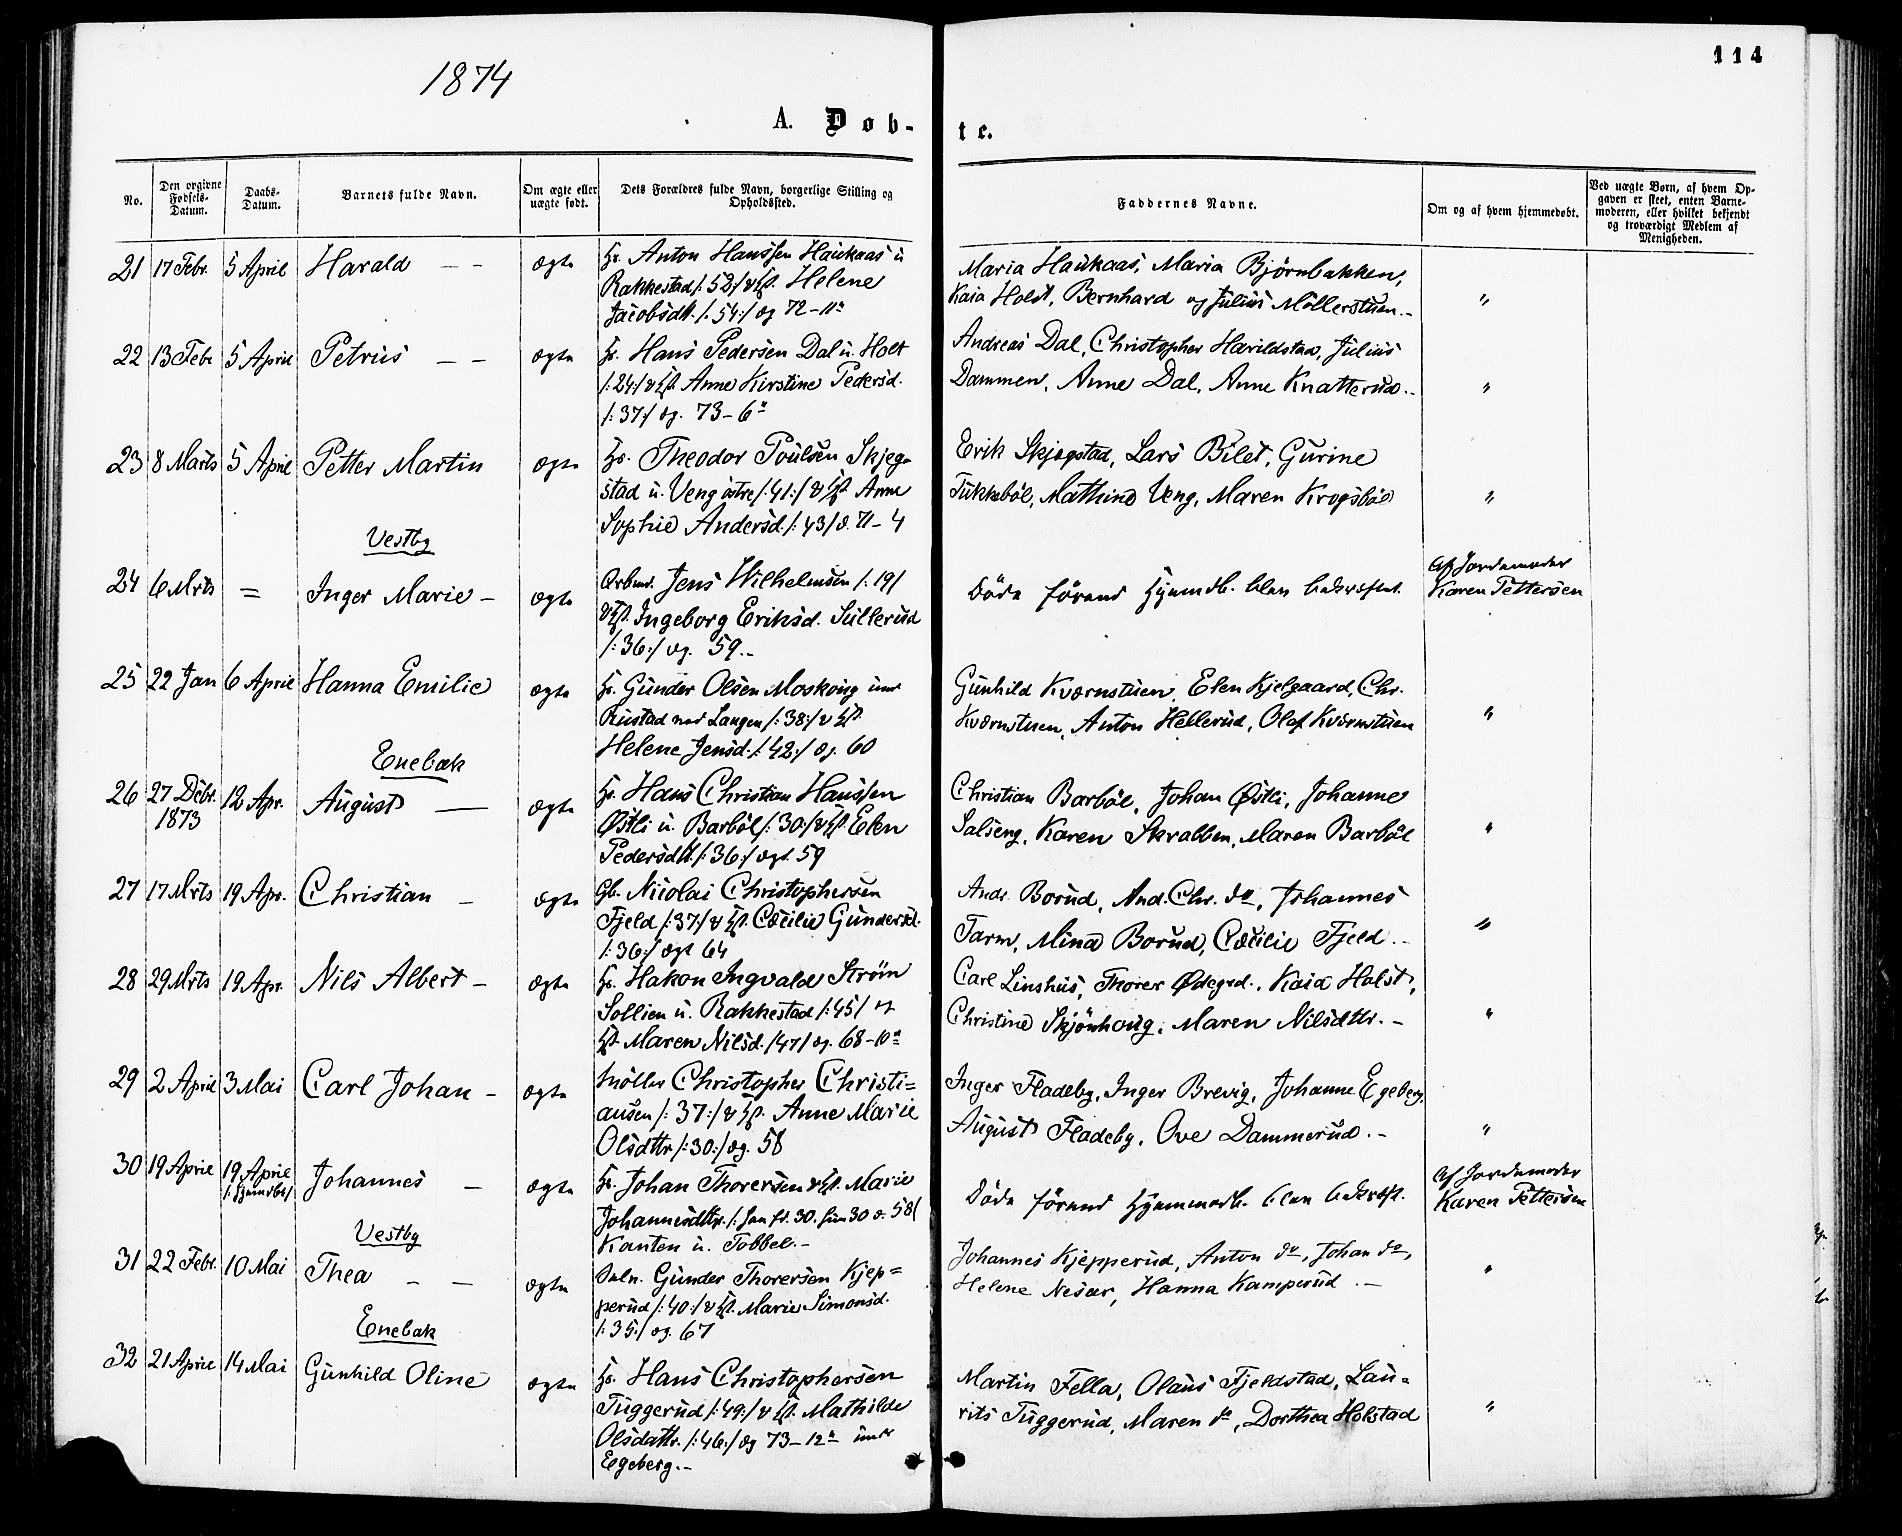 1874
114
A. Døb-
te.
No.
Den opgivne Fødsels-Datum.
Daabs-Datum.
Barnets fulde Navn.
Om ægte eller uægte født.
Dets Forældres fulde Navn, borgerlige Stilling og Opholdssted.
Faddernes Navne.
Om og af hvem hjemmedøbt.
Ved uægte Børn, af hvem Op-
gaven er skeet, enten Barne-
moderen, eller hvilket bekjendt
og troværdigt Medlem af
Menigheden.
21 17 Febr. 5 April Harald — — ægte Hr. Anton Hanssen Haukaas u
Rakkestad /: 52:/ & Hst. Helene
Jacobsdtt. /: 54:/ æg 72-11"
Maria Haukaas, Maria Bjørnbakken,
Kaia Holst, Bernhard og Julius Møllerstuen.- "
22 13 Febr 5 April Petrus — — ægte Hr. Hans Pedersen Dal u. Holt
/:24:/ & Hst. Anne Kirstine Pedersd.
/:37:/ æg. 73-6"
Andreas Dal, Christopher Harildstad, Julius
Dammen, Anne Dal, Anne Knatterud.- "
23 8 Marts 5 April Petter Martin ægte Hr. Theodor Poulsen Skjeg-
stad u. Veng østre /:41:/ & Hst. Anne
Sophie Andersd. /:43/ æ. 71-4
Erik Skjægstad, Lars Bilet, Gurine
Tukkebøl, Mathine Veng, Maren Krogsbøl "
Vestby
24 6 Mrts = Inger Marie - ægte Arbmd. Jens Wilhelmsen /: 19/
& Hst. Ingeborg Eriksd. Sullerud
/:36:/ æg. 59.-
Døde førend Hjemmdb. blev bekræftet.
Af Jordemoder
Karen Pettersen
25 22 Jan 6 April Hanna Emilie ægte Hr. Gunder Olsen Moskoug under
Rustad ved Langen /:38:/ & Hst.
Helene Jensd. /:42:/ æg. 60
Gunhild Kværnstuen, Elen Kjelgaard, Chr.
Kværnstuen, Anton Hellerud, Olaf Kværnstuen "
Enebak
26 27 Debr. 1873 12 Apr. August — ægte Hr. Hans Christian Hanssen
Østli u. Barbøl /:30:/ & Hst. Elen
Pedersdtt. /:36:/ ægt. 59
Christian Barbøl, Johan Østli, Johanne
Salseng, Karen Skrabben, Maren Barbøl "
27 17 Mrts 19 Apr. Christian - ægte Gb. Nicolai Christophersen
Fjeld /:37:/ & Hst. Cæcilie Gundersd.
/:36:/ ægt 64
Andr. Borud, And. Chr. do, Johannes
Tarm, Mina Borud, Cæcilie Fjeld.- "
28 29 Mrts 19 Apr. Nils Albert - ægte Hr. Hakon Ingvald Strøm
Sollien u. Rakkestad /:45/ &
Hst. Maren Nilsd. /47/ æg. 68-10"
Carl Linshus, Thorer Ødegrd., Kaia Holst,
Christine Skjønhoug, Maren Nilsdtr.- "
29 2 April 3 Mai Carl Johan - ægte Møller Christopher Christi=
ansen /: 37:/ & Hst. Anne Marie
Olsdttr /:30:/ æg. 58
Inger Fladeby, Inger Brevig, Johanne Egeberg,
August Fladeby, Ove Dammerud.- "
30 19 April 19 April /: hjemdbt/ Johannes - ægte Hr. Johan Thorersen & Hst. Marie
Johannesdttr. /: han fd. 30. hun 30 æ. 58/
Kanten u. Tobbel.-
Døde førend Hjemmedb. blev bekræft.
Af Jordemoder
Karen Pettersen
Vestby
31 22 Febr. 10 Mai Thea - - ægte Seln. Gunder Thorersen Kjep=
perud /:40:/ & Hst. Marie Simonsd.
/:35:/ æg. 67
Johannes Kjepperud, Anton do, Johan do,
Helene Nesær, Hanna Kamperud.- "
Enebak
32 21 April 14 Mai Gunhild Oline ægte Hr. Hans Christophersen
Tuggerud /:49:/ & Hst. Mathilde
Olsdattr. /:46:/ æg 73-12" under
Egeberg.-
Martin Fella, Olaus Fjeldstad, Lau-
rits Tuggerud, Maren do, Dorthea Holstad "